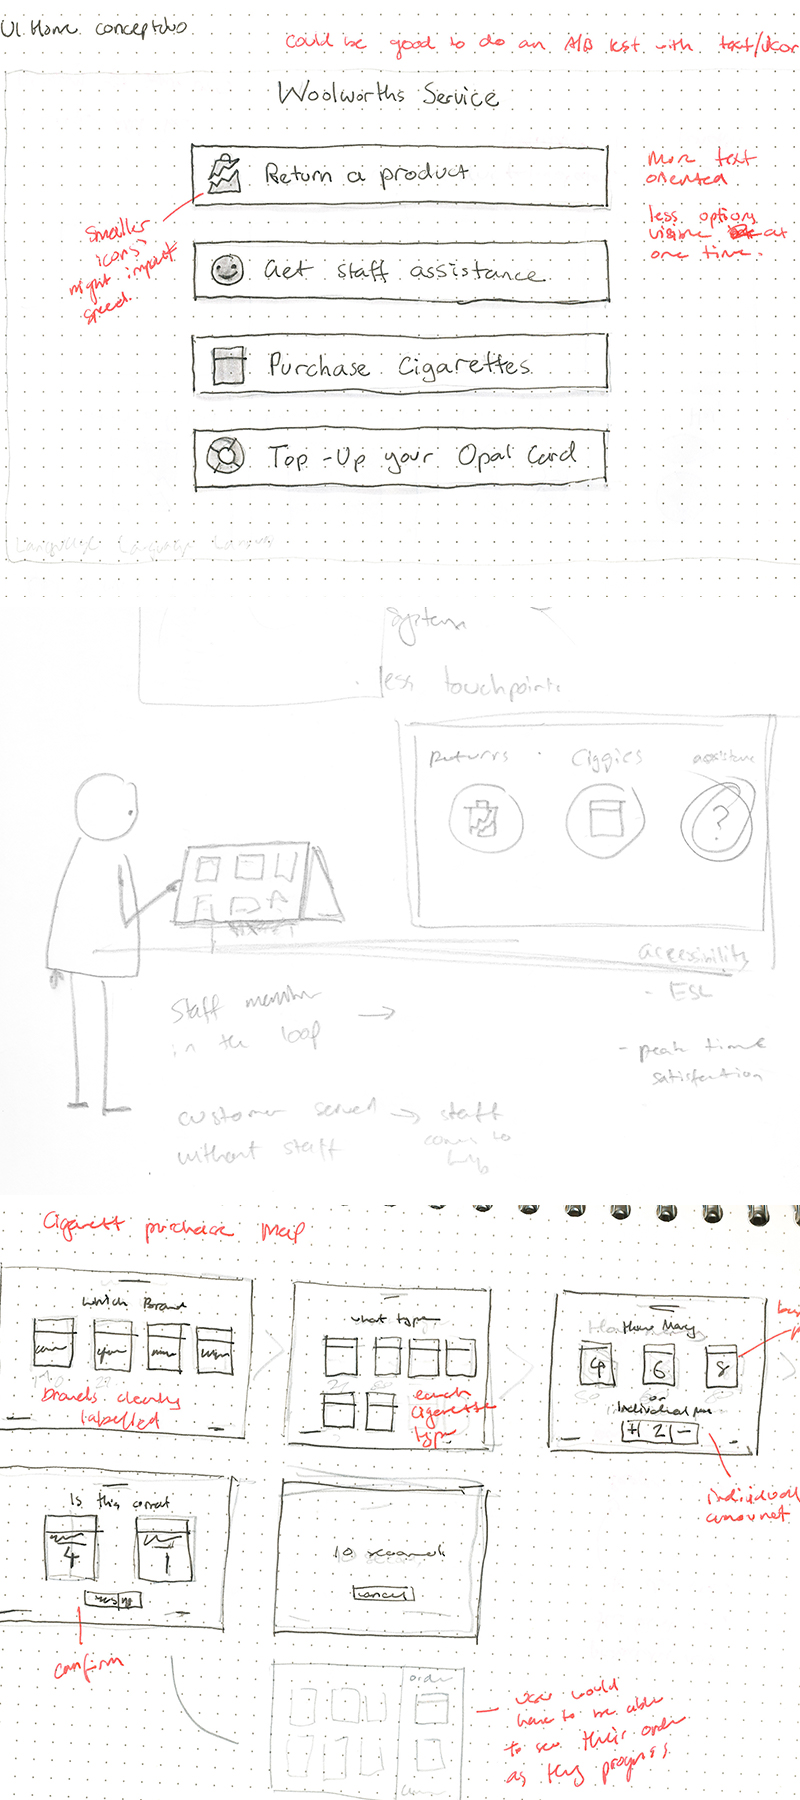 UI Home concept
could be good to do an A/B test with text/icon
Woolworths Service
Return a product
Get staff assistance
Purchase Cigarettes
Top-Up your Opal Card
More text
oriented
less options
visible at
one time.
Smaller
icons
might impact
speed.
Language Language
system
less touchpoints
Returns
Ciggies
assistance
?
accessibility
- ESL
- peak time
satisfaction
Staff member
in the loop
customer served
without staff
staff
comes to
Cigarett purchase Map
which Brand
Brands clearly
labelled
what type
each
cigarette
type
How Many
4 6 8
or
Individual
+ 2 -
individual
amount
Is this correct
4 1
yes no
confirm
10 seconds
cancel
order
user would
have to be able
to see their order
as they progress